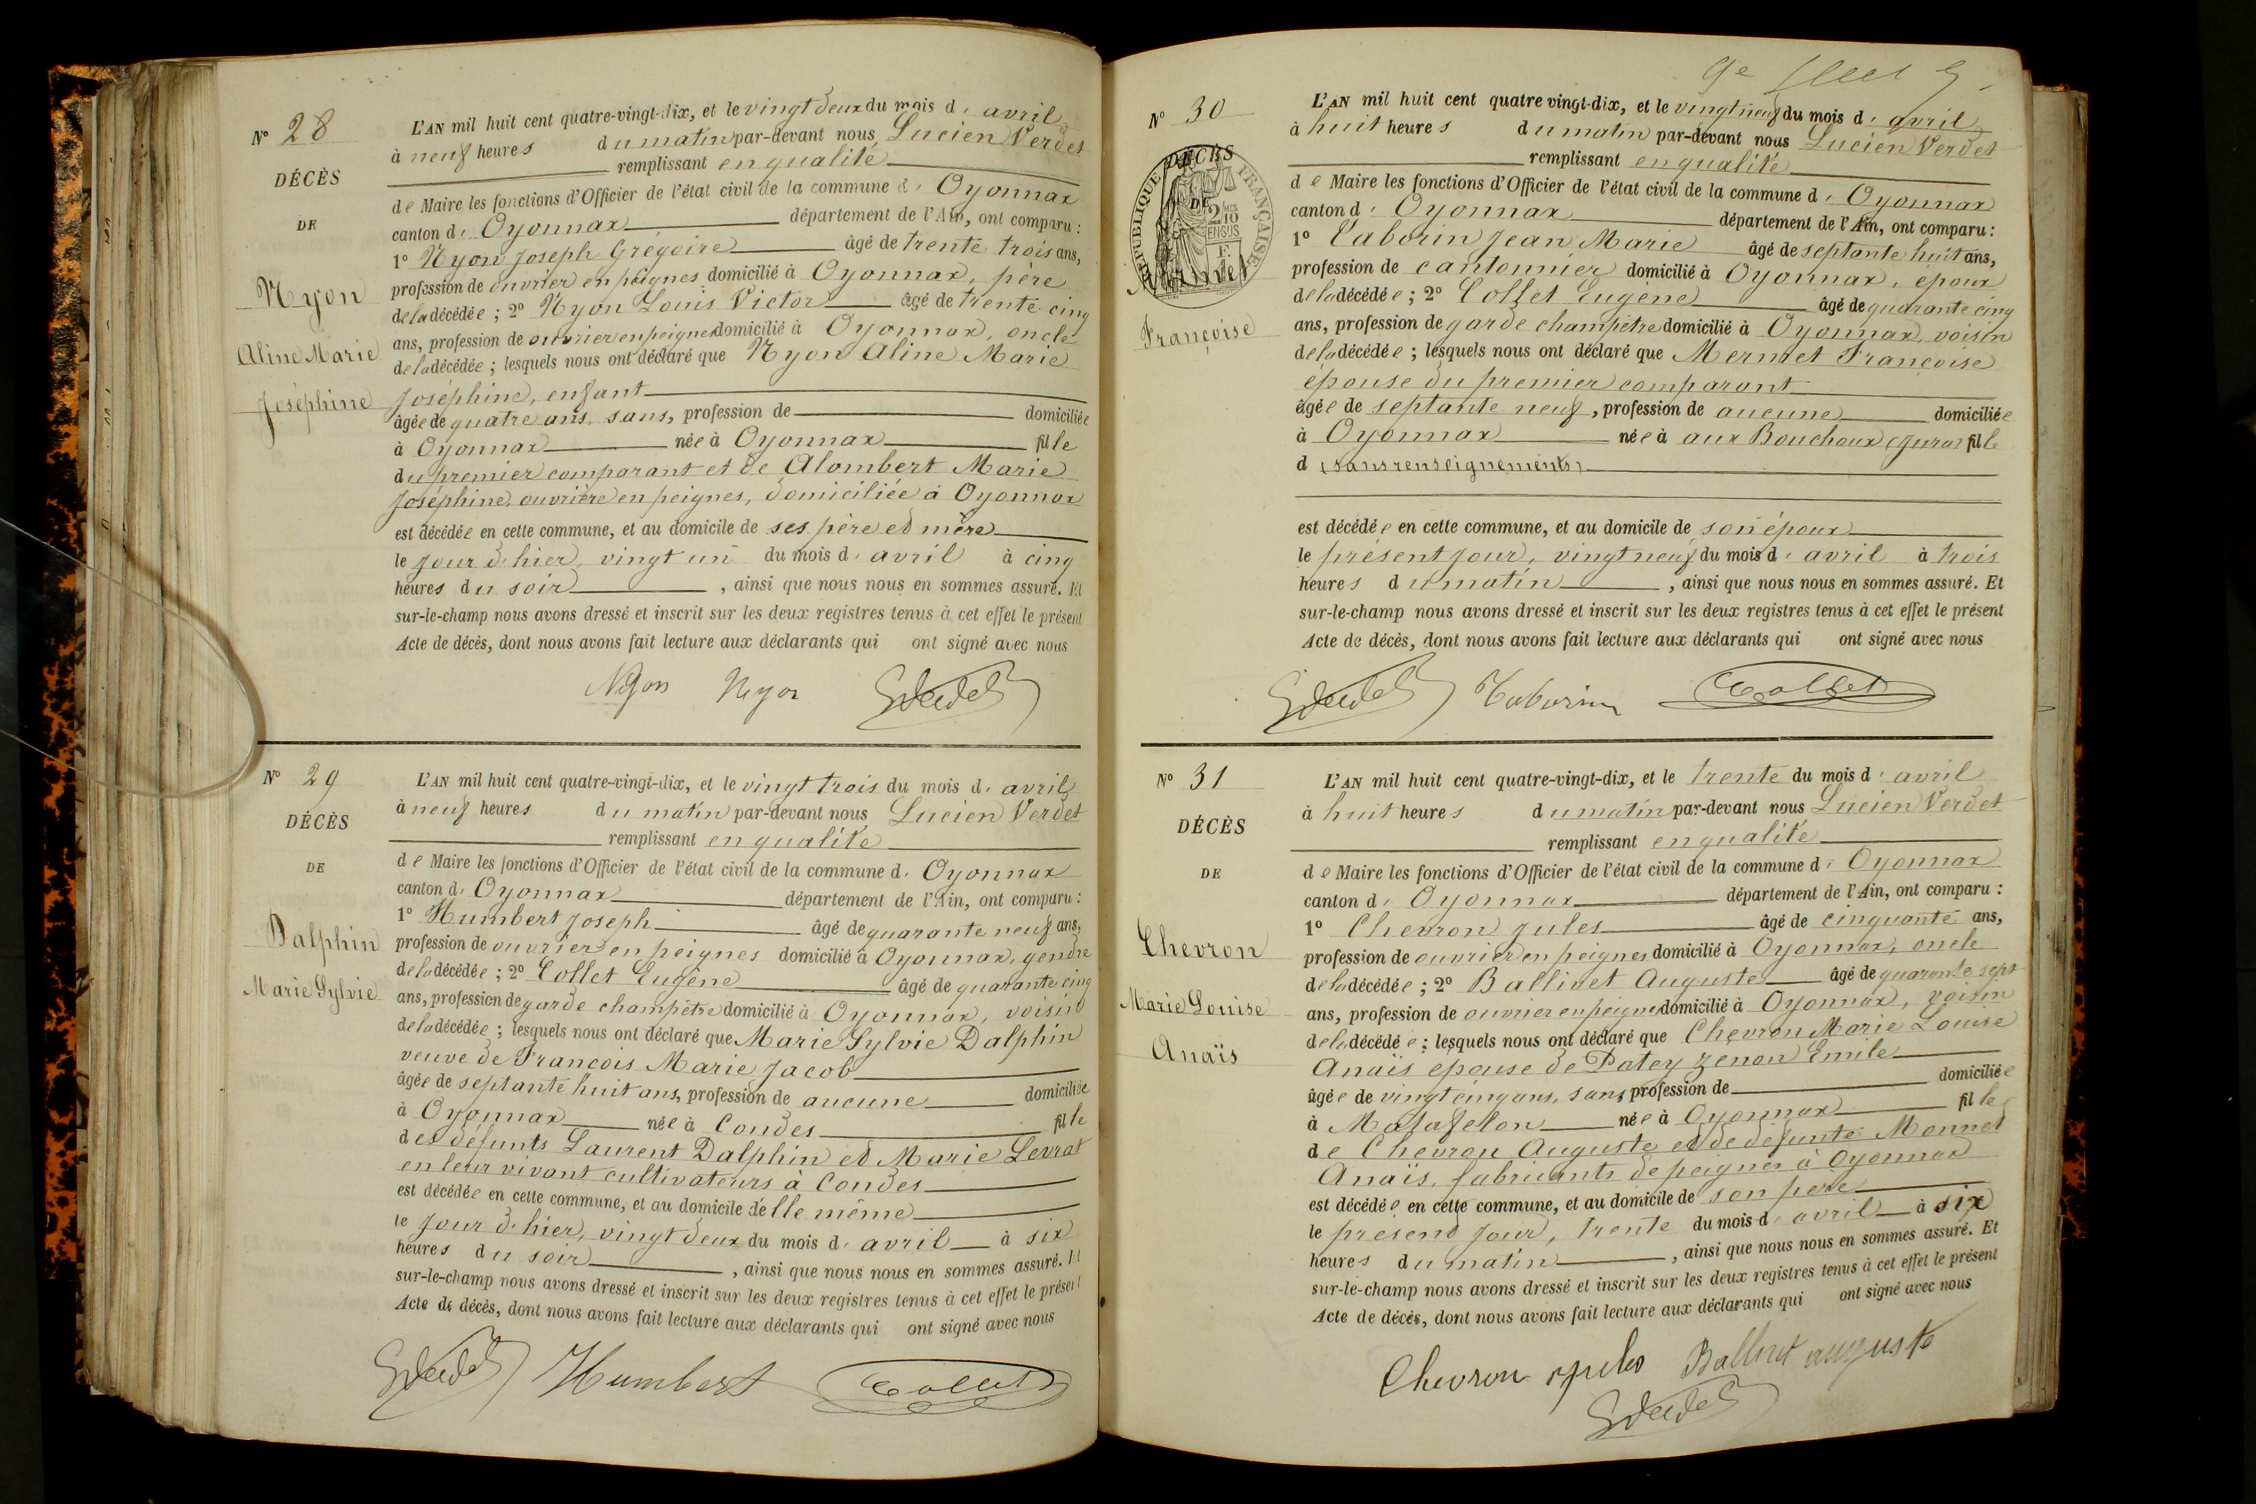 N° 28
DÉCÈS
DE
Nyon
Aline Marie
Joséphine
L'AN mil huit cent quatre-vingt-dix, et le vingt deux du mois d' avril
à neuf heures du matin par-devant nous Lucien Verdet
remplissant en qualité
de Maire les fonctions d'Officier de l'état civil de la commune d' Oyonnax
canton d' Oyonnax département de l'Ain, ont comparu :
1° Nyon Joseph Grégoire âgé de trente trois ans,
profession de ouvrier en peignes domicilié à Oyonnax, père
de la décédée ; 2° Nyon Louis Victor âgé de trente cinq
ans, profession de ouvrier en peignes domicilié à Oyonnax, oncle
de la décédée ; lesquels nous ont déclaré que Nyon Aline Marie
Joséphine, enfant
âgée de quatre ans, sans, profession de domiciliée
à Oyonnax née à Oyonnax fille
du premier comparant et de Alombert Marie
Joséphine, ouvrière en peignes, domiciliée à Oyonnax
est décédée en cette commune, et au domicile de ses père et mère
le jour d'hier, vingt un du mois d' avril à cinq
heures du soir , ainsi que nous nous en sommes assuré. Et
sur-le-champ nous avons dressé et inscrit sur les deux registres tenus à cet effet le présent
Acte de décès, dont nous avons fait lecture aux déclarants qui ont signé avec nous
Nyon Nyon
N° 29
DÉCÈS
DE
Dalphin
Marie Sylvie
L'AN mil huit cent quatre-vingt-dix, et le vingt trois du mois d' avril
à neuf heures du matin par-devant nous Lucien Verdet
remplissant en qualité
de Maire les fonctions d'Officier de l'état civil de la commune d' Oyonnax
canton d' Oyonnax département de l'Ain, ont comparu :
1° Humbert Joseph âgé de quarante neuf ans,
profession de ouvrier en peignes domicilié à Oyonnax, gendre
de la décédée ; 2° Collet Eugène âgé de quarante cinq
ans, profession de garde champêtre domicilié à Oyonnax, voisin
de la décédée ; lesquels nous ont déclaré que Marie Sylvie Dalphin
veuve de François Marie Jacob
âgée de septante huit ans, profession de aucune domiciliée
à Oyonnax née à Condes fille
des défunts Laurent Dalphin et Marie Levrat
en leur vivant cultivateurs à Condes
est décédée en cette commune, et au domicile d'elle même
le jour d'hier, vingt deux du mois d' avril à six
heures du soir , ainsi que nous nous en sommes assuré. Et
sur-le-champ nous avons dressé et inscrit sur les deux registres tenus à cet effet le présent
Acte de décès, dont nous avons fait lecture aux déclarants qui ont signé avec nous
Humbert Collet
9e
N° 30
DÉCÈS
DE
RÉPUBLIQUE FRANÇAISE
Mermet
Françoise
L'AN mil huit cent quatre vingt-dix, et le vingt neuf du mois d' avril
à huit heures du matin par-devant nous Lucien Verdet
remplissant en qualité
de Maire les fonctions d'Officier de l'état civil de la commune d' Oyonnax
canton d' Oyonnax département de l'Ain, ont comparu :
1° Taborin Jean Marie âgé de septante huit ans,
profession de cantonnier domicilié à Oyonnax, époux
de la décédée ; 2° Collet Eugène âgé de quarante cinq
ans, profession de garde champêtre domicilié à Oyonnax, voisin
de la décédée ; lesquels nous ont déclaré que Mermet Françoise
épouse du premier comparant
âgée de septante neuf , profession de aucune domiciliée
à Oyonnax née à aux Bouchoux (Jura) fille
d (sans renseignements)
est décédée en cette commune, et au domicile de son époux
le présent jour, vingt neuf du mois d' avril à trois
heures du matin , ainsi que nous nous en sommes assuré. Et
sur-le-champ nous avons dressé et inscrit sur les deux registres tenus à cet effet le présent
Acte de décès, dont nous avons fait lecture aux déclarants qui ont signé avec nous
Taborin Collet
N° 31
DÉCÈS
DE
Chevron
Marie Louise
Anaïs
L'AN mil huit cent quatre-vingt-dix, et le trente du mois d' avril
à huit heures du matin par-devant nous Lucien Verdet
remplissant en qualité
de Maire les fonctions d'Officier de l'état civil de la commune d' Oyonnax
canton d' Oyonnax département de l'Ain, ont comparu :
1° Chevron Jules âgé de cinquante ans,
profession de ouvrier en peignes domicilié à Oyonnax, oncle
de la décédée ; 2° Ballivet Auguste âgé de quarante sept
ans, profession de ouvrier en peignes domicilié à Oyonnax, voisin
de la décédée ; lesquels nous ont déclaré que Chevron Marie Louise
Anaïs épouse de Patey Zenon Emile
âgée de vingt cinq ans, sans profession de domiciliée
à Matafelon née à Oyonnax fille
de Chevron Auguste et de défunte Monnet
Anaïs, fabricants de peignes à Oyonnax
est décédée en cette commune, et au domicile de son père
le présent jour, trente du mois d' avril à six
heures du matin , ainsi que nous nous en sommes assuré. Et
sur-le-champ nous avons dressé et inscrit sur les deux registres tenus à cet effet le présent
Acte de décès, dont nous avons fait lecture aux déclarants qui ont signé avec nous
Chevron Jules Ballivet auguste